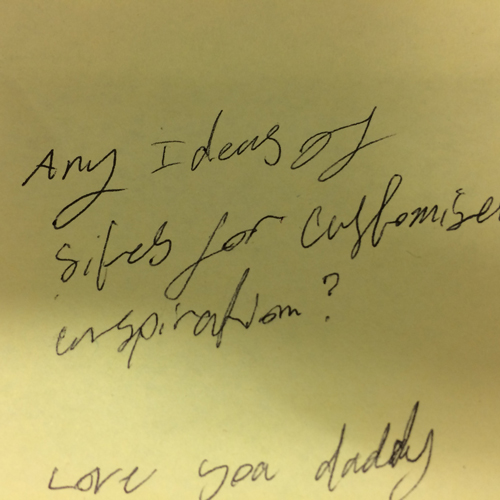 Any Ideas of
sites for customise
inspiration?
Love you daddy